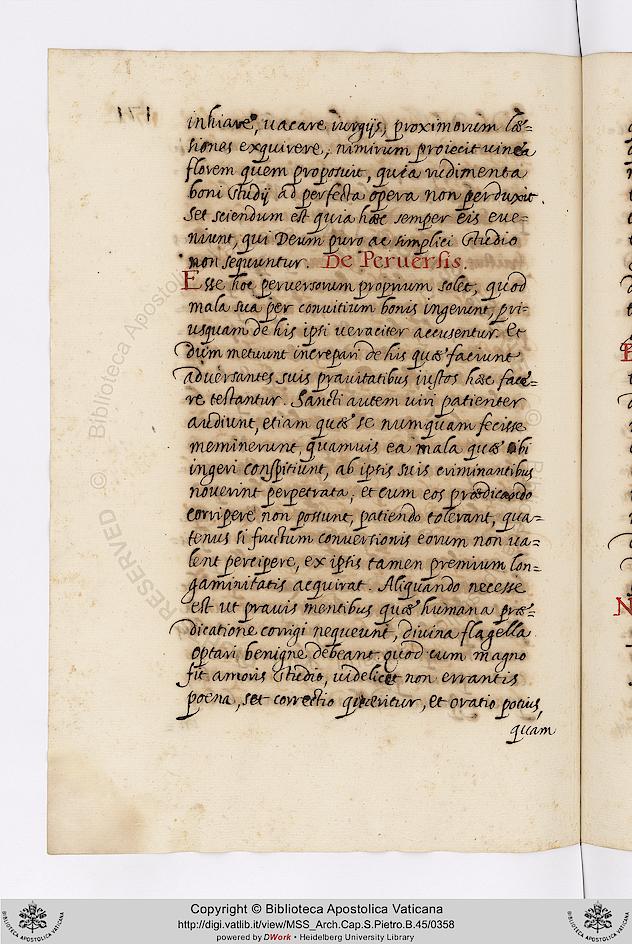 171
inhiare, uacare iurgijs, proximorum læ=
siones exquirere, nimirum proiecit uinea
florem quem proposuit, quia rudimenta
boni studij ad perfecta opera non perduxit.
Set sciendum est quia hæc semper eis eue=
niunt, qui Deum puro ac simplici studio
non sequuntur. De Peruersis.
Esse hoc peruersorum proprium solet, quod
mala sua per conuitium bonis ingerunt, pri=
usquam de his ipsi ueraciter accusentur. Et
dum metuunt increpari de his quæ faciunt
aduersantes suis prauitatibus iustos hæc face=
re testantur. Sancti autem uiri patienter
audiunt, etiam quæ se numquam fecisse
meminerunt, quamuis ea mala quæ sibi
ingeri conspitiunt, ab ipsis suis criminantibus
nouerint perpetrata, et cum eos prædicando
corripere non possunt, patiendo tolerant, qua=
tenus si fructum conuersionis eorum non ua=
lent percipere, ex ipsis tamen premium lon=
gaminitatis acquirat. Aliquando necesse
est ut prauis mentibus quæ humana præ=
dicatione corrigi nequeunt, diuina flagella
optari benigne debeant. quod cum magno
fit amoris studio, uidelicet non errantis
poena, set correctio quæritur, et oratio potius,
quam
© Biblioteca Apostolica
RESERVED
Copyright © Biblioteca Apostolica Vaticana
http://digi.vatlib.it/view/MSS_Arch.Cap.S.Pietro.B.45/0358
powered by DWork • Heidelberg University Library